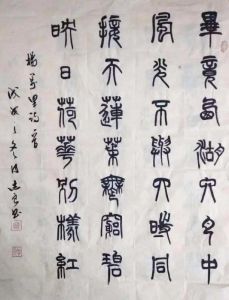 畢竟西湖六月中
風光不與四時同
接天蓮葉無窮碧
映日荷華別樣紅
楊萬里詩
戊戌之冬